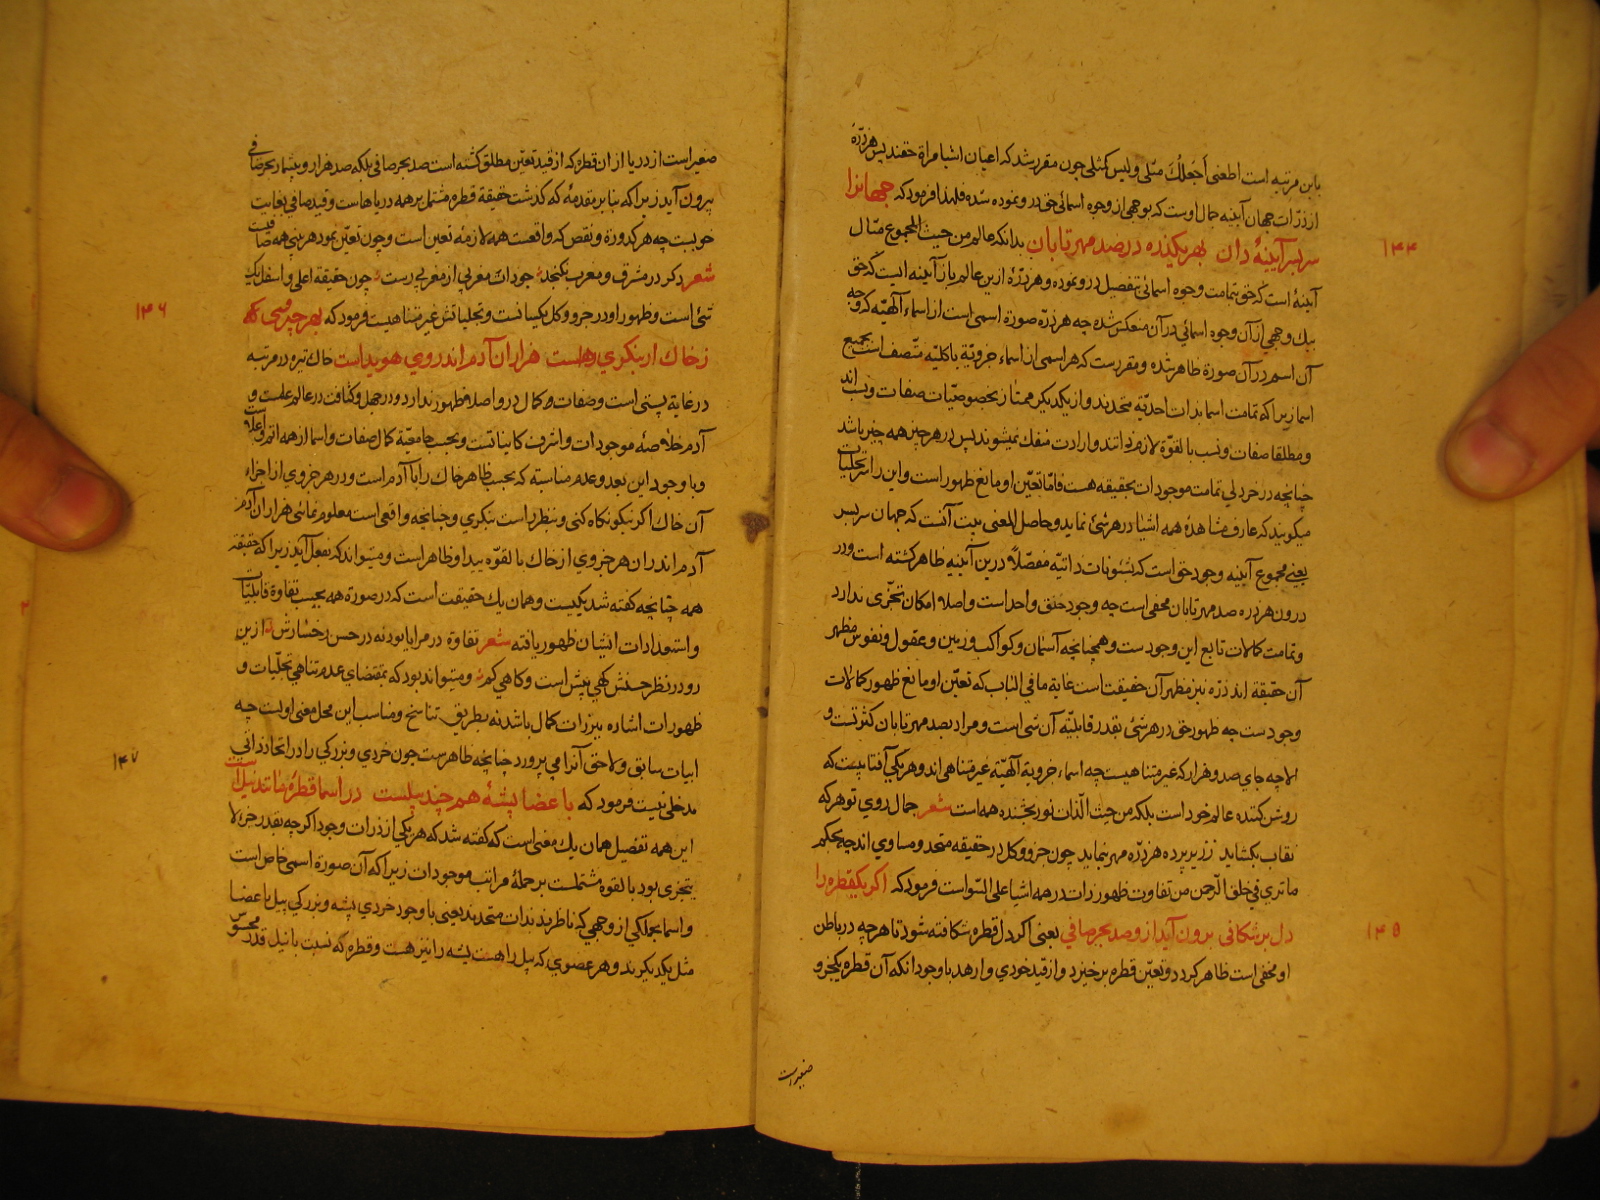 باین مرتبه است اطعنی اجعلك مثلی ولیس کمثلی چون مقرر شد که اعیان اشیا مرآة حقند پس هر ذرّهٔ
از ذرّات جهان آیینه جمال اوست که بوجهی از وجوه اسمائی حق در و نموده شده فلهذا فرمود که جهانرا
۱۴۴
سر بسر آیینهٔ دان بهر یکذره در صد مهر تابان بدانکه عالم من حیث المجموع مثال
آیینهٔ است که حق بتمامت وجوه اسمائی بتفصیل در و نموده و هر ذرّهٔ ازین عالم باز آیینه ایست که حق
بیك وجهی از آن وجوه اسمائی در آن منعکس شده چه هر ذرّه صورة اسمی است از اسماء آلهیّه که و وجه
آن اسم در آن صورة ظاهر شده و مقررست که هر اسمی از اسماء جزویّه یا کلیّه متّصف است بجمیع
اسما زیرا که تمامت اسما بذات احدیّه متحدند و از یکدیگر ممتاز بخصوصیّات صفات و نسب اند
و مطلقا صفات و نسب بالقوّة لازم ذاتند و از ذات منفك نمیشوند پس در هر چیز همه چیز باشد
چنانچه در خردلی تمامت موجودات بحقیقه هست فامّا تعیّن او مانع ظهور است و این را سرّ تجلیات
میگویند که عارف مشاهده همه اشیا در هر شئ نماید و حاصل المعنی بیت آنست که جهان سر بسر
یعنی مجموع آیینه وجود حق است که شئونات ذاتیّه مفصّلاً درین آیینه ظاهر گشته است و در
درون هر ذره صد مهر تابان مخفی است چه وجود حق واحد است و اصلا امکان تجزّی ندارد
و تمامت کمالات تابع این وجود ست و همچنانچه آسمان و کواکب و زمین و عقول و نفوس مظهر
آن حقیقة اند ذرّه نیز مظهر آن حقیقت است غایة ما فی الباب که تعیّن او مانع ظهور کمالات
وجود ست چه ظهور حق در هر شئ بقدر قابلیّه آن شی است و مراد بصد مهر تابان کثرتست و
الا چه جای صد و هزار که غیر متناهیست چه اسماء جزویة آلهیّه غیر متناهی اند و هر یکی آفتابیست که
روشن کننده عالم خود است بلکه من حیث الذّات نور بخشنده همه است شعر جمال روی تو هر که
نقاب بگشاید ز زیر پرده هر ذرّه مهر بنماید چون جزو و کل در حقیقه متحد و مساوی اند چه بحکم
ما تری فی خلق الرّحمن من تفاوت ظهور ذات در همه اشیا علی السّواست فرمود که اگر یکقطره را
۱۴۵
دل بر شکافی برون آید ازو صد بحر صافی یعنی اگر دل قطره شکافته شود تا هر چه در باطن
او مخفی است ظاهر گردد و تعیّن قطره برخیزد و از قید خودی وارهد با وجود انکه آن قطره یکجزو
صغیر است
صغیر است از دریا از ان قطره که از قید تعیّن مطلق گشته است صد بحر صافی بلکه صد هزار و بیشمار بحر صافی
برون آید زیرا که بنا بر مقدمهٔ که گذشت حقیقة قطره مشتمل بر همه دریاهاست و قید صافی بغایت
خوبست چه هر کدورة و نقص که واقعست همه لازمه تعین است و چون تعیّن نبود هر بینی همه صافیست
شعر دگر در مشرق و مغرب نگنجد جو ذات مغربی از مغربی رست چون حقیقة اعلی و اسفل یك
شئ است و ظهور او در جزو و کل یکسانست و تجلیاتش غیر متناهیست فرمود که بهر جزوی که
۱۴۶
ز خاك ار بنگری راست هزاران آدم اندر وی هویداست خاك تیره در مرتبه
در غایة پستی است و صفات و کمال در و اصلا مظهور ندارد و در جهل و کثافت در عالم علمست و
آدم خلاصهٔ موجودات و اشرف کایناتست و بحسب جامعیّة کمال صفات و اسما از همه اتم و اعلاست
و با وجود این بعد و عدم مناسبة که بحسب ظاهر خاك را با آدم است و در هر جزوی از اجزاء
آن خاك اگر نیکو نگاه کنی و بنظر راست بنگری و چنانچه واقعی است معلوم نمائی هزاران آدم
آدم اندر ان هر جزوی از خاك بالقوّه پیدا و ظاهر است و میتواند که بفعل آید زیرا که حقیقه
همه چنانچه گفته شد یکیست و همان یك حقیقت است که در صورة همه بحسب تفاوة قابلیّات
و استعدادات ایشان ظهور یافته شعر تفاوة در مرایا بود نه در حسن رخسارش ازین
رو در نظر حسنش گهی بیش است و گاهی کم و میتواند بود که بمقتضای عدم تناهی تجلّیات و
ظهورات اشاره ببرزات کمال باشد نه بطریق تناسخ و مناسب این محل معنی اولیست چه
ابیات سابق و لاحق آنرا می پرورد چنانچه ظاهرست چون خردی و بزرگی را در اتحاد ذاتی
۱۴۷
مدخلی نیست فرمود که با عضا پشهٔ هم چند پیلست در اسما قطرهٔ مانند نیل است
این همه تفصیل همان یك معنی است که گفته شد که هر یکی از ذرات وجود اگر چه بقدر جزء لا
یتجزی بود بالقوه مشتملست بر جملهٔ مراتب موجودات زیرا که آن صورة اسمی خاص است
و اسما بجلگی از وجهی که ناظر بذات متحدند یعنی با وجود خردی پشه و بزرگی پیل با عضا
مثل یکدیگرند و هر عضوی که پیل را هست پشه را نیز هست و قطره که نسبت با نیل قدر محسوس